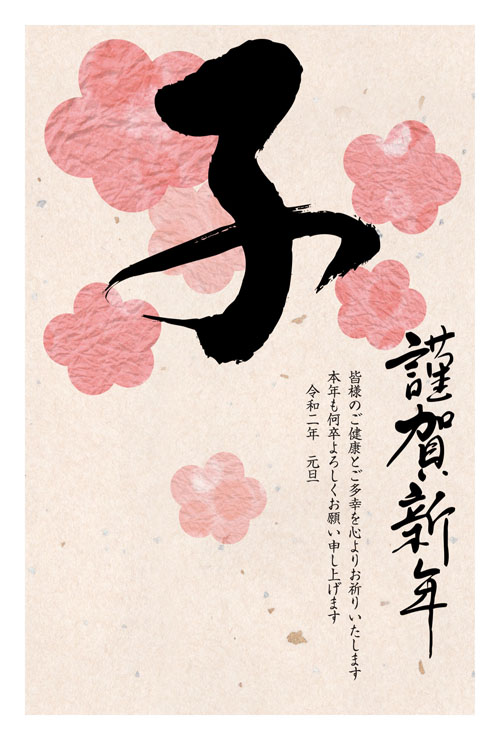 子
謹賀新年
皆様のご健康とご多幸を心よりお祈りいたします
本年も何卒よろしくお願い申し上げます
令和二年　元旦